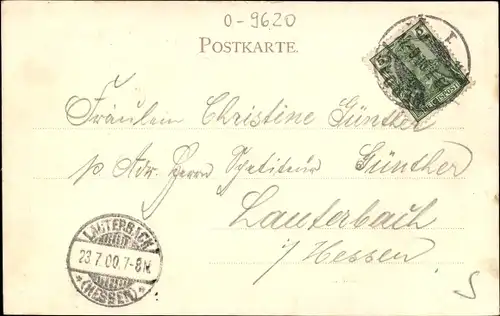 0-9620
POSTKARTE.
Fräulein Christine Günther
p Adr. Herrn Günther
Lauterbach
i/ Hessen
LAUTERBACH
23.7.00.7-8N.
*(HESSEN)*